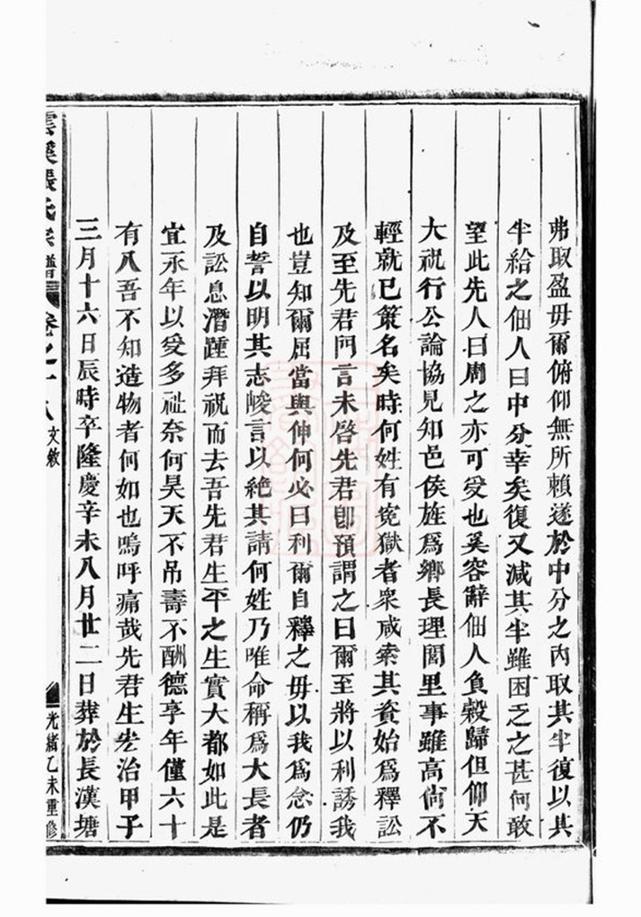 弗取盈毋爾俯仰無所賴遂於中分之內取其半復以其
半給之佃人曰中分幸矣復又減其半雖困乏之甚何敢
望此先人曰周之亦可受也奚容辭佃人負穀歸但仰天
大祝行公論協見知邑侯旌爲鄉長理閭里事雖高尙不
輕就已策名矣時何姓有寃獄者衆咸索其賚始爲釋訟
及至先君門言未啓先君卽預謂之曰爾至將以利誘我
也豈知爾屈當與伸何必曰利爾自釋之毋以我爲念仍
自誓以明其志峻言以絶其請何姓乃唯命稱爲大長者
及訟息潛踵拜祝而去吾先君生平之生實大都如此是
宜永年以受多祉奈何昊天不吊壽不酬德享年僅六十
有八吾不知造物者何如也嗚呼痛哉先君生弘治甲子
三月十六日辰時卒隆慶辛未八月廿二日葬於長漢塘
雲溪張氏宗譜 卷之十八 文敘 光緒乙未重修